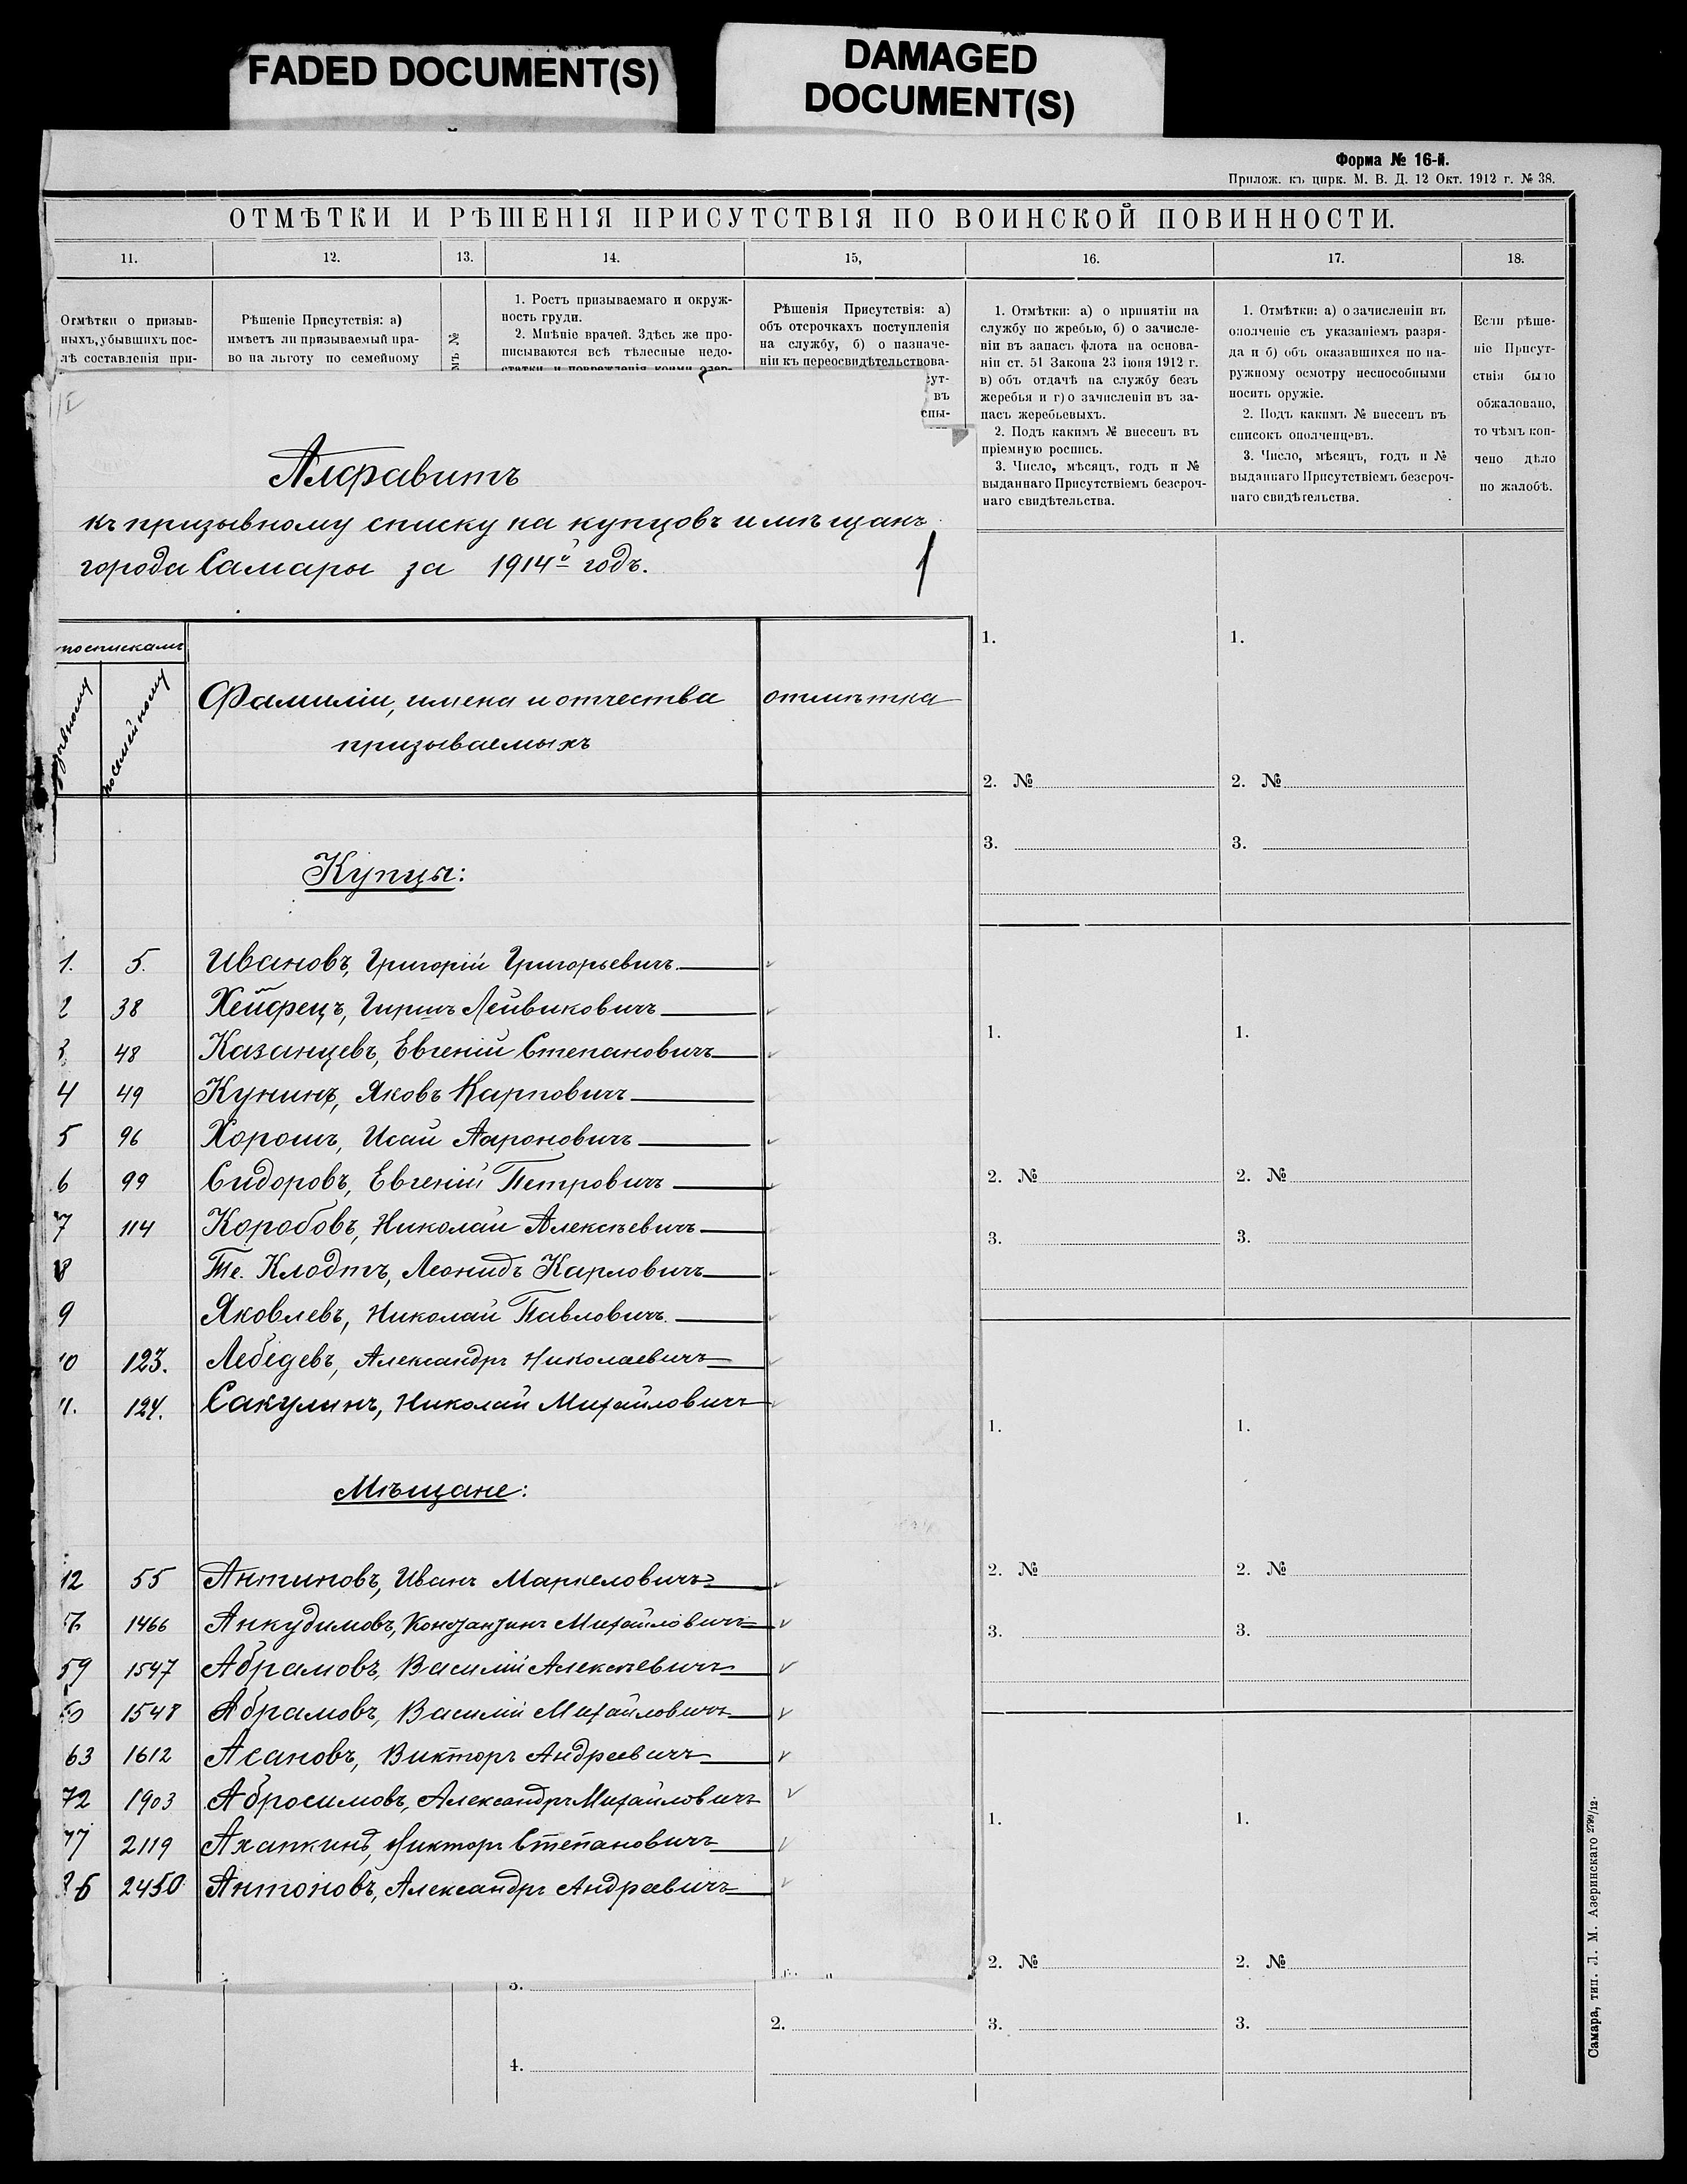 FADED DOCUMENT(S)
DAMAGED
DOCUMENT(S)
Форма № 16-й.
Прилож. къ цирк. М. В. Д. 12 Окт. 1912 г. № 38.
ОТМѢТКИ И РѢШЕНІЯ ПРИСУТСТВІЯ ПО ВОИНСКОЙ ПОВИННОСТИ.
11. 12. 13. 14. 15, 16. 17. 18.
Отмѣтки о призыв-
ныхъ, убывшихъ пос-
лѣ составленія при-
Рѣшеніе Присутствія: а)
имѣетъ ли призываемый пра-
во на льготу по семейному
мъ №
1. Ростъ призываемаго и окруж-
ность груди.
2. Мнѣніе врачей. Здѣсь же про-
писываются всѣ тѣлесные недо-
статки и поврежденія коими одер-
Рѣшенія Присутствія: а)
объ отсрочкахъ поступленія
на службу, б) о назначе-
ніи къ переосвидѣтельствова-
сут-
въ
спы-
1. Отмѣтки: а) о принятіи на
службу по жребью, б) о зачисле-
ніи въ запасъ флота на основа-
ніи ст. 51 Закона 23 іюня 1912 г.
в) объ отдачѣ на службу безъ
жеребья и г) о зачисленіи въ за-
пасъ жеребьевыхъ.
2. Подъ какимъ № внесенъ въ
пріемную роспись.
3. Число, мѣсяцъ, годъ и №
выданнаго Присутствіемъ безсроч-
наго свидѣтельства.
1. Отмѣтки: а) о зачисленіи въ
ополченіе съ указаніемъ разря-
да и б) объ оказавшихся по на-
ружному осмотру неспособными
носить оружіе.
2. Подъ какимъ № внесенъ въ
списокъ ополченцевъ.
3. Число, мѣсяцъ, годъ и №
выданнаго Присутствіемъ безсроч-
наго свидѣтельства.
Если рѣше-
ніе Присут-
ствія было
обжаловано,
то чѣмъ кон-
чено дѣло
по жалобѣ.
Алфавитъ
къ призывному списку на купцовъ и мѣщанъ
города Самары за 1914й годъ.
1
по спискамъ
зывному
посемейному
Фамиліи, имена и отчества
призываемыхъ
отмѣтка
Купцы:
1. 5. Ивановъ, Григорій Григорьевичъ.
2 38 Хейфецъ, Гиршъ Лейвиковичъ
3. 48 Казанцевъ, Евгеній Степановичъ
4 49 Кунинъ, Яковъ Карповичъ
5 96 Хорошъ, Исай Аароновичъ
6 99 Сидоровъ, Евгеній Петровичъ
7 114 Коробовъ, Николай Алексѣевичъ
8 Те. Клодтъ, Леонидъ Карловичъ
9 Яковлевъ, Николай Павловичъ.
10 123. Лебедевъ, Александръ Николаевичъ
11. 124. Сакулинъ, Николай Михайловичъ
Мѣщане:
12 55 Антиповъ, Иванъ Маркеловичъ
1466 Анкудимовъ, Константинъ Михайловичъ
59 1547 Абрамовъ, Василій Алексѣевичъ
60 1548 Абрамовъ, Василій Михайловичъ
63 1612 Асановъ, Викторъ Андреевичъ
72 1903 Абросимовъ, Александръ Михайловичъ
77 2119 Ахапкинъ, Викторъ Степановичъ
2450 Антоновъ, Александръ Андреевичъ
1. 1.
2. № 2. №
3. 3.
1. 1.
2. № 2. №
3. 3.
1. 1.
2. № 2. №
3. 3.
1. 1.
2. № 2. №
3.
2. 3. 3.
4.
Самара, тип. Л. М. Азеринскаго 2799/12.